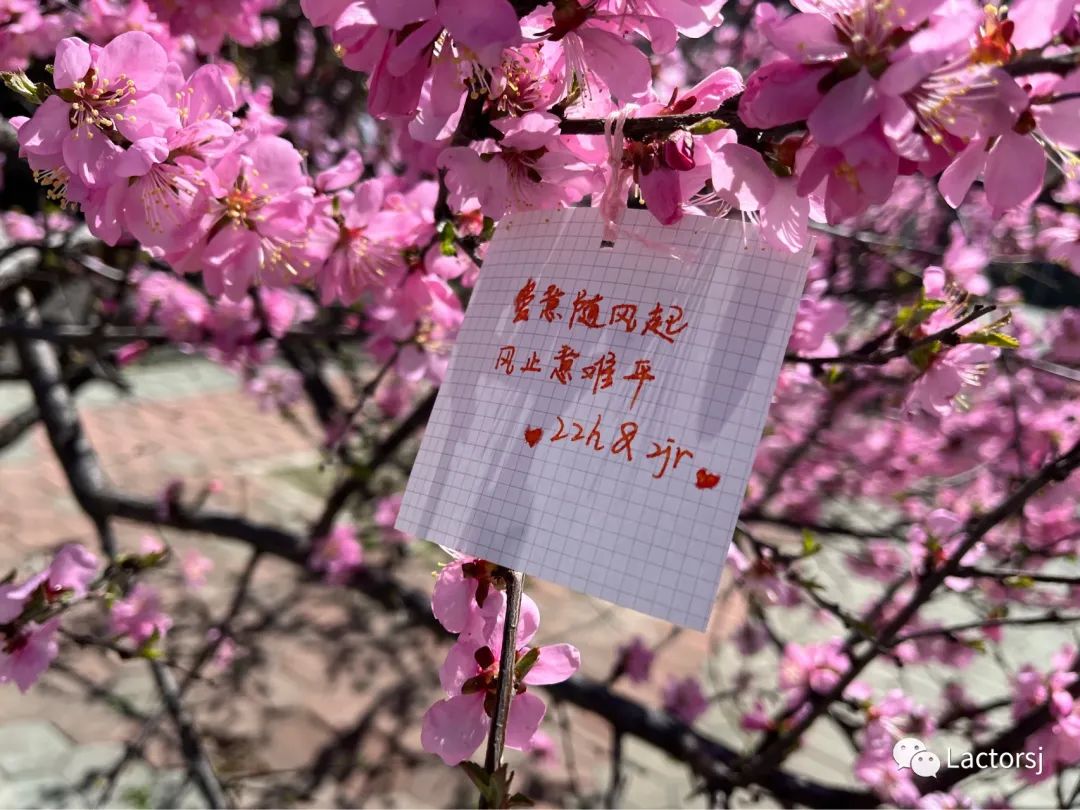 爱意随风起
风止意难平
zzh & zjr
Lactorsj